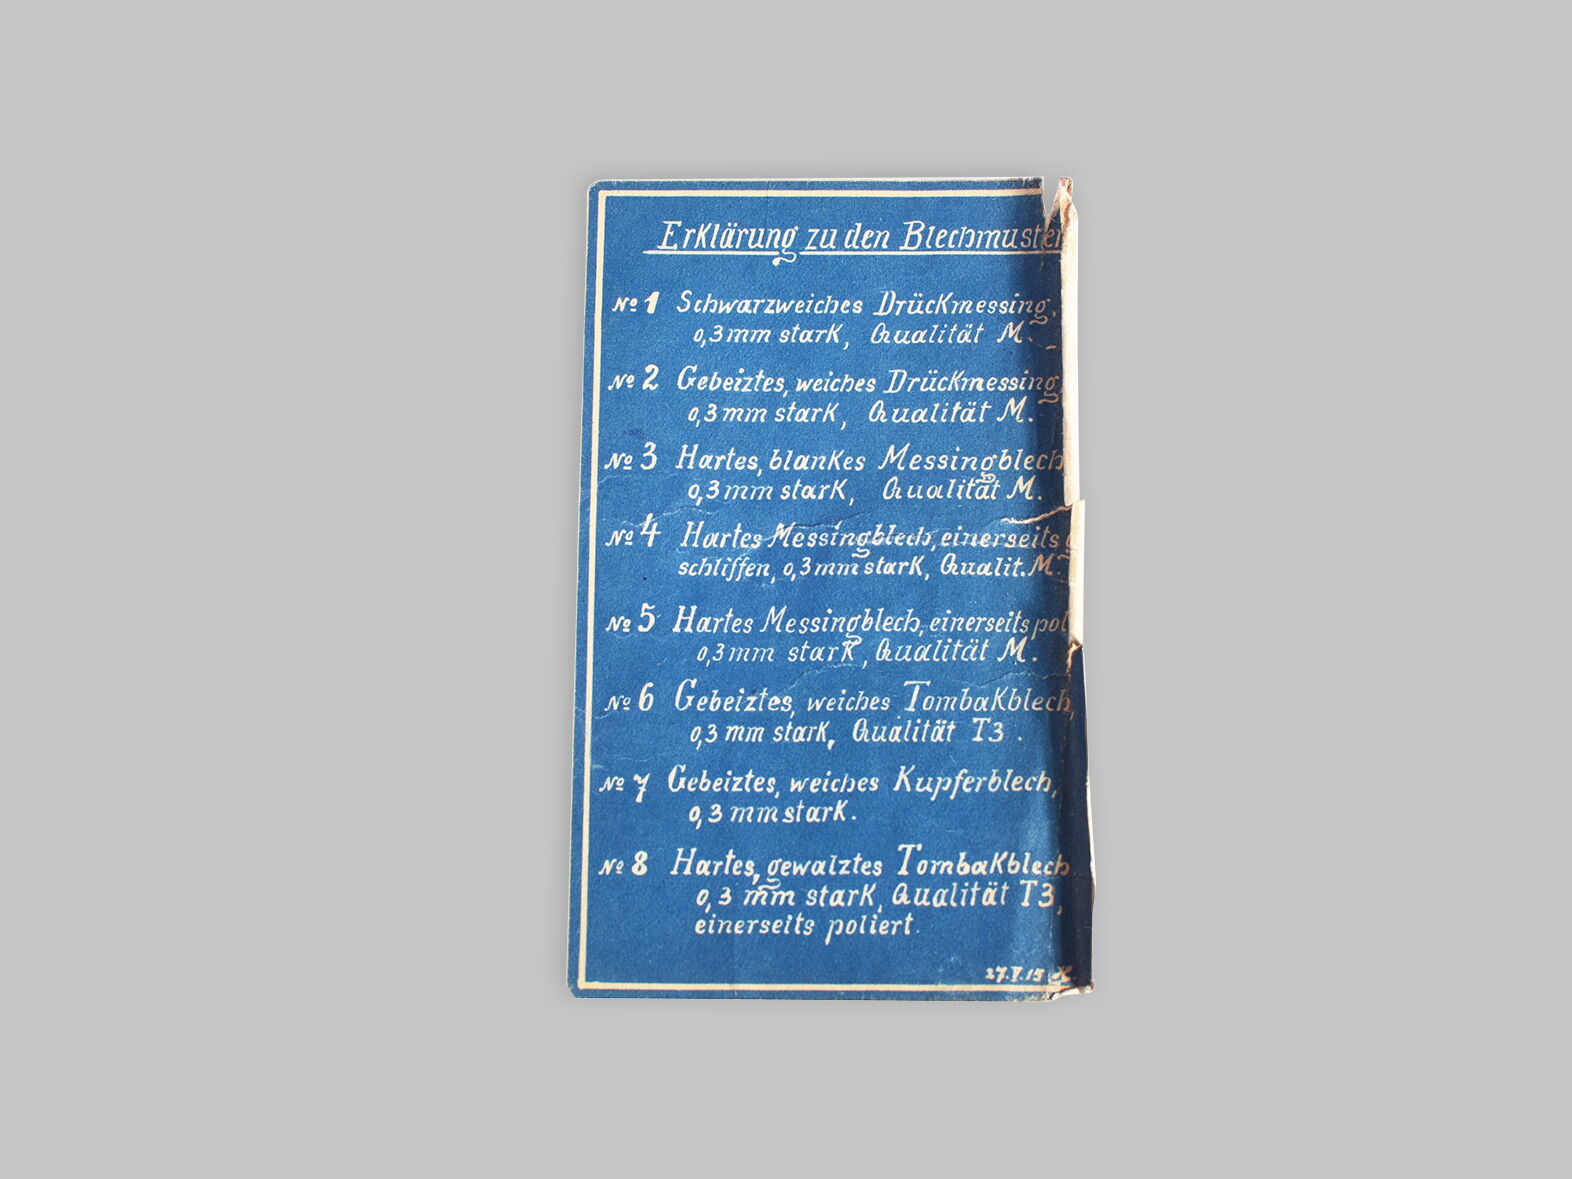 Erklärung zu den Blechmuster
№ 1 Schwarzweiches Drückmessing,
0,3 mm stark, Qualität M.
№ 2 Gebeiztes, weiches Drückmessing,
0,3 mm stark, Qualität M.
№ 3 Hartes, blankes Messingblech
0,3 mm stark, Qualität M.
№ 4 Hartes Messingblech, einerseits g
schliffen, 0,3 mm stark, Qualit. M.
№ 5 Hartes Messingblech, einerseits pol
0,3 mm stark, Qualität M.
№ 6 Gebeiztes, weiches Tombakblech,
0,3 mm stark, Qualität T3.
№ 7 Gebeiztes, weiches Kupferblech,
0,3 mm stark.
№ 8 Hartes, gewalztes Tombakblech
0,3 mm stark, Qualität T3,
einerseits poliert.
27.V.15